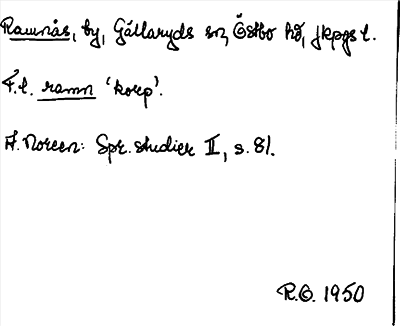 Ramnås, by, Gällaryds sn, Östbo hd, Jkpgs l.
F.l. ramn 'korp'.
A. Noreen: Spr. studier II, s. 81.
R.G. 1950